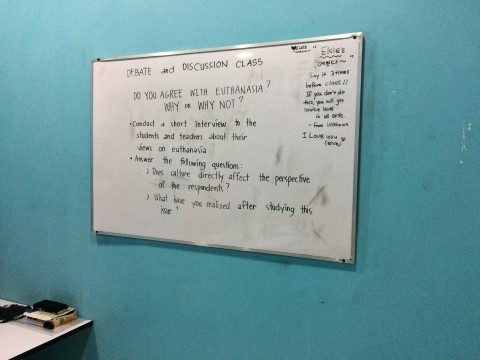 DEBATE and DISCUSSION CLASS
DO YOU AGREE WITH EUTHANASIA?
WHY OR WHY NOT?
• Conduct a short interview to the
students and teachers about their
views on euthanasia
• Answer the following questions:
> Does culture directly affect the perspective
of the respondents?
> What have you realized after studying this
issue?
Elsie's
Say it 3 times
before class!!
If you don't do
this, you will get
in all
- from
I Love you